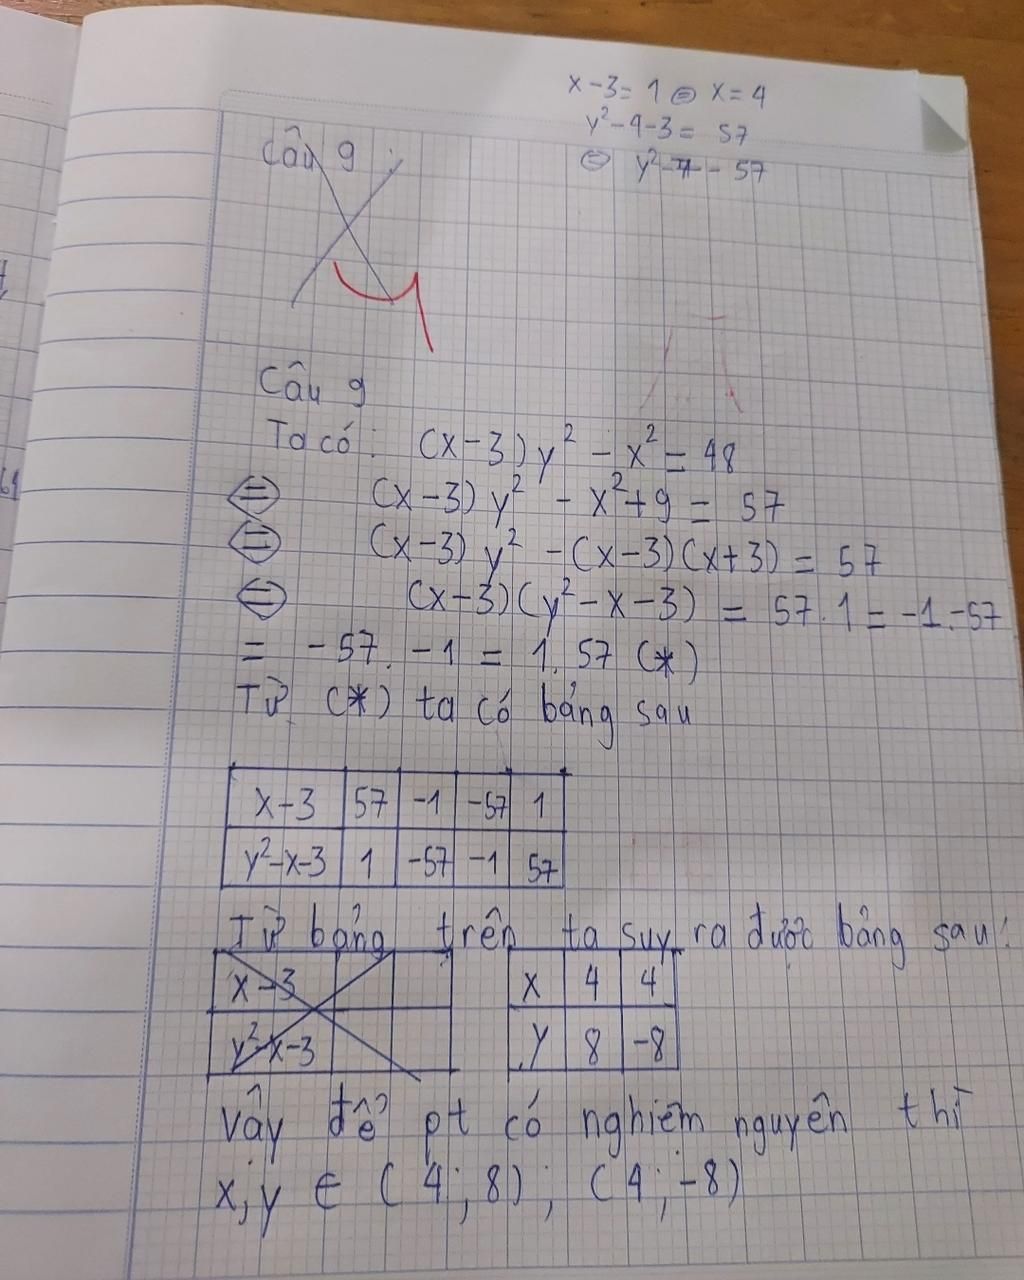 x-3= 1 ⇔ x=4
y²-4-3= 57
⇔ y²-7= 57
Câu 9 :
Câu 9
Ta có: (x-3)y² - x² = 48
⇔ (x-3) y² - x²+9 = 57
⇔ (x-3) y² -(x-3)(x+3) = 57
⇔ (x-3)(y²-x-3) = 57.1 = -1.-57
= -57. -1 = 1. 57 (*)
Từ (*) ta có bảng sau
x-3 57 -1 -57 1
y²-x-3 1 -57 -1 57
Từ bảng trên ta suy ra được bảng sau:
x-3
y²-x-3
x 4 4
y 8 -8
Vậy để pt có nghiệm nguyên thì
x,y ∈ (4;8); (4;-8)